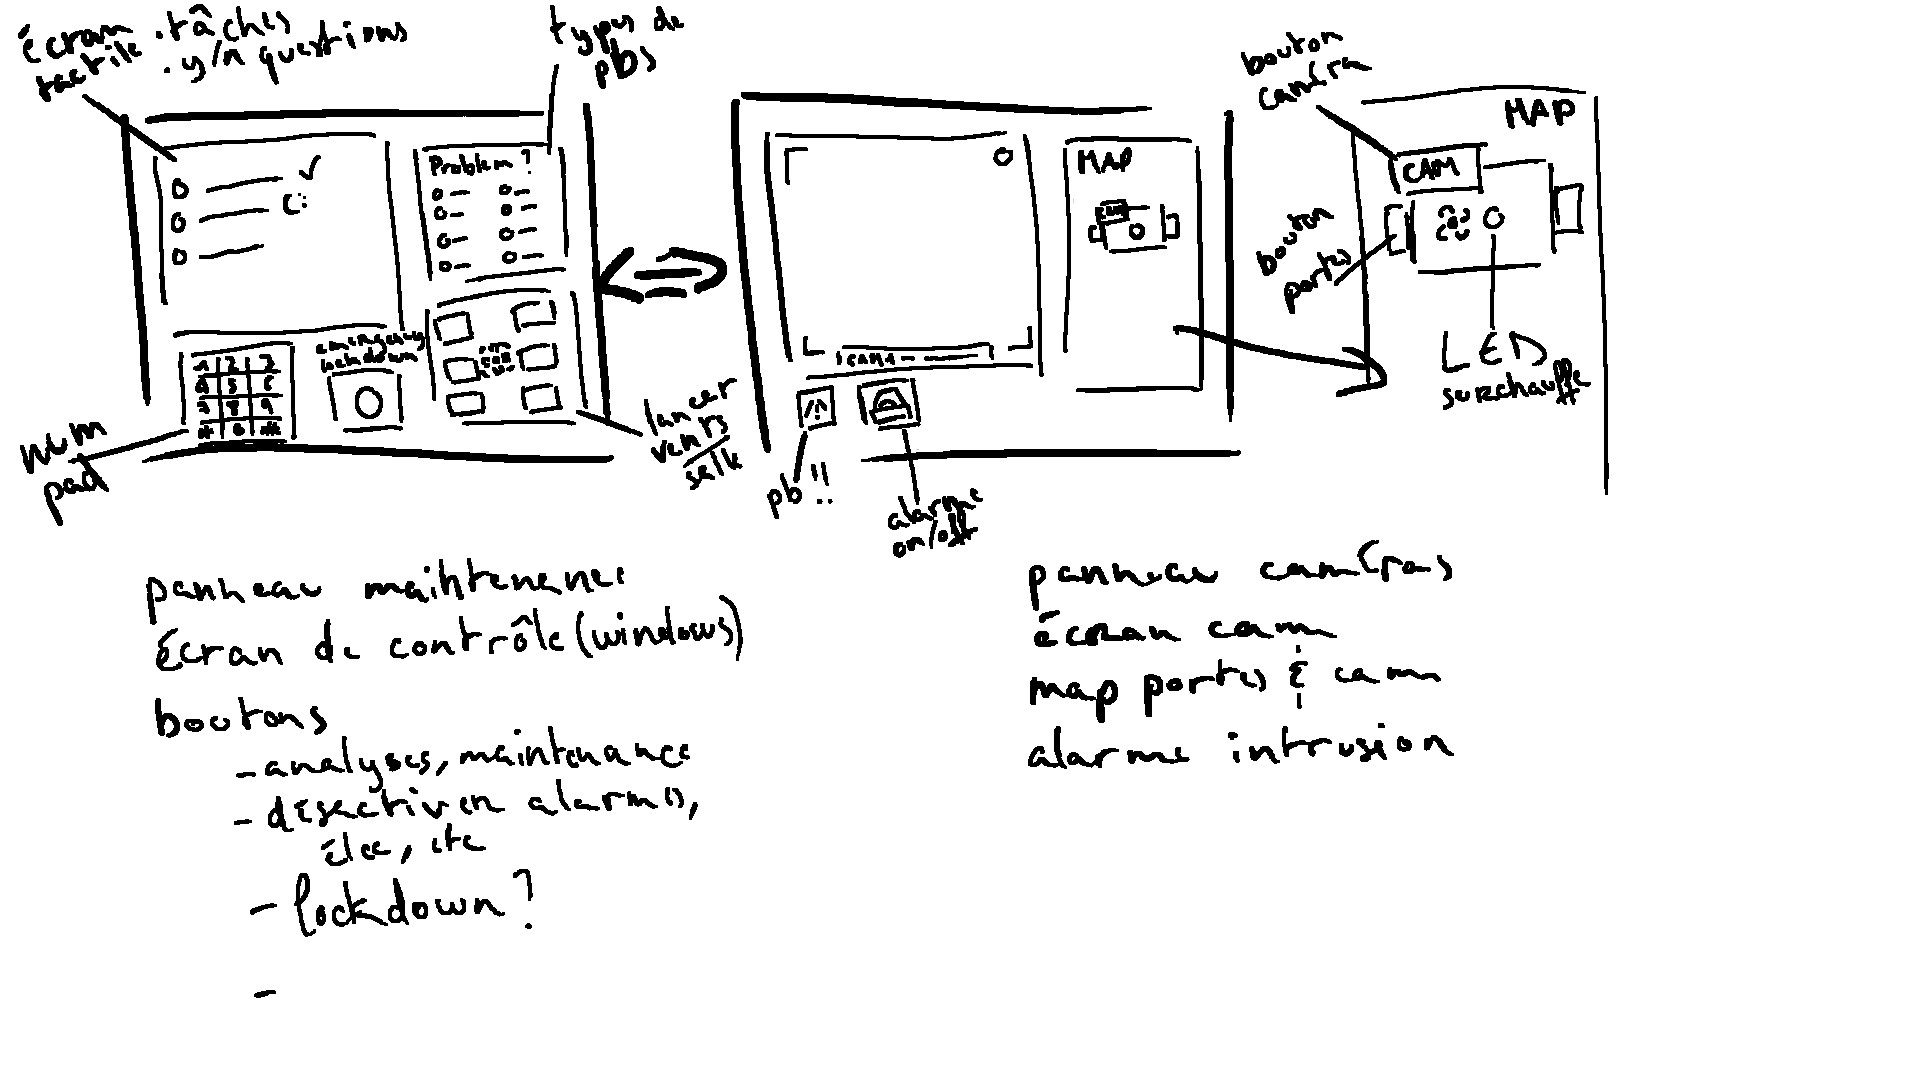 écran
tactile
. tâches
. y/n questions
types de
pbs
Problem ?
emergency
lockdown
1 2 3
4 5 6
7 8 9
* 0 #
num
pad
lancer
vents
MAP
CAM
CAM 1
pb !!
alarme
on/off
bouton
caméra
MAP
CAM
bouton
portes
LED
surchauffe
panneau maintenance
écran de contrôle (windows)
boutons
- analyses, maintenance
- désactiver alarmes,
élec, etc
- lockdown ?
-
panneau caméras
écran cam
map portes & cam
alarme intrusion